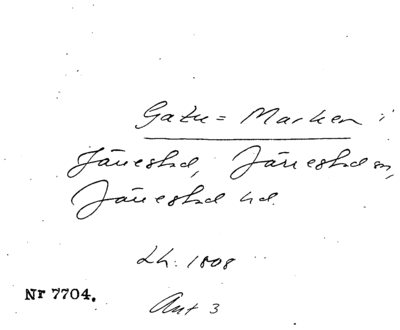 Gatu=Marken i
Järrestad, Järrestad sn,
Järrestad hd.
Lh. 1808
Nr 7704.
Akt 3